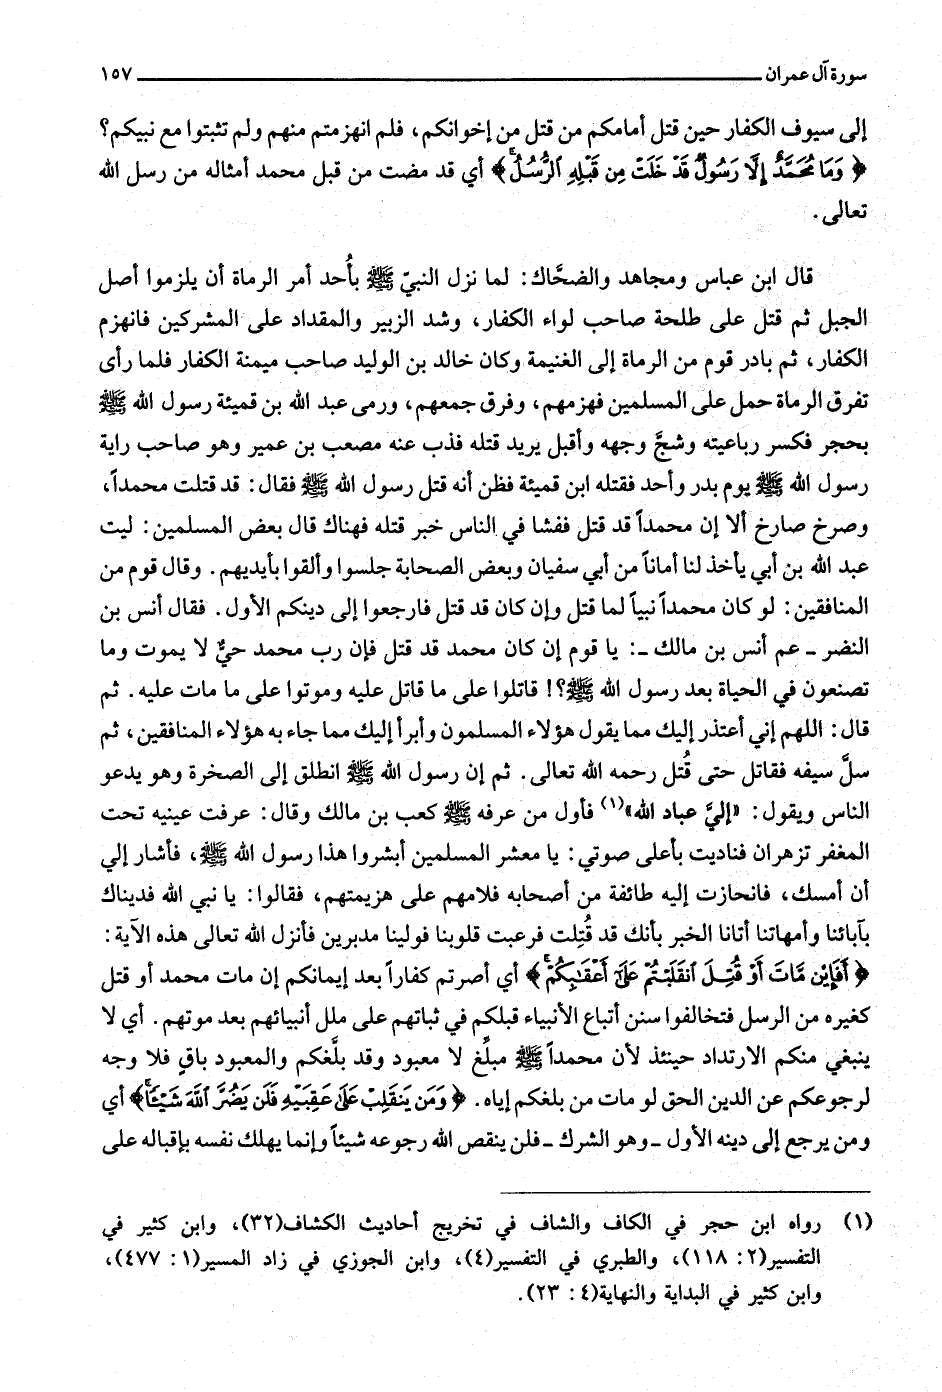 سورة آل عمران ١٥٧
إلى سيوف الكفار حين قتل أمامكم من قتل من إخوانكم، فلم انهزمتم منهم ولم تثبتوا مع نبيكم؟
﴿ وَمَا مُحَمَّدٌ إِلَّا رَسُولٌ قَدْ خَلَتْ مِن قَبْلِهِ ٱلرُّسُلُۚ ﴾ أي قد مضت من قبل محمد أمثاله من رسل الله
تعالى.
قال ابن عباس ومجاهد والضحَّاك: لما نزل النبيّ ﷺ بأُحد أمر الرماة أن يلزموا أصل
الجبل ثم قتل علي طلحة صاحب لواء الكفار، وشد الزبير والمقداد على المشركين فانهزم
الكفار، ثم بادر قوم من الرماة إلى الغنيمة وكان خالد بن الوليد صاحب ميمنة الكفار فلما رأى
تفرق الرماة حمل على المسلمين فهزمهم، وفرق جمعهم، ورمى عبد الله بن قميئة رسول الله ﷺ
بحجر فكسر رباعيته وشجَّ وجهه وأقبل يريد قتله فذب عنه مصعب بن عمير وهو صاحب راية
رسول الله ﷺ يوم بدر وأحد فقتله ابن قميئة فظن أنه قتل رسول الله ﷺ فقال: قد قتلت محمداً،
وصرخ صارخ ألا إن محمداً قد قتل ففشا في الناس خبر قتله فهناك قال بعض المسلمين: ليت
عبد الله بن أبي يأخذ لنا أماناً من أبي سفيان وبعض الصحابة جلسوا وألقوا بأيديهم. وقال قوم من
المنافقين: لو كان محمداً نبياً لما قتل وإن كان قد قتل فارجعوا إلى دينكم الأول. فقال أنس بن
النضر ـ عم أنس بن مالك ـ: يا قوم إن كان محمد قد قتل فإن رب محمد حيٌّ لا يموت وما
تصنعون في الحياة بعد رسول الله ﷺ؟! قاتلوا على ما قاتل عليه وموتوا على ما مات عليه. ثم
قال: اللهم إني أعتذر إليك مما يقول هؤلاء المسلمون وأبرأ إليك مما جاء به هؤلاء المنافقين، ثم
سلَّ سيفه فقاتل حتى قُتل رحمه الله تعالى. ثم إن رسول الله ﷺ انطلق إلى الصخرة وهو يدعو
الناس ويقول: «إليَّ عباد الله»(١) فأول من عرفه ﷺ كعب بن مالك وقال: عرفت عينيه تحت
المغفر تزهران فناديت بأعلى صوتي: يا معشر المسلمين أبشروا هذا رسول الله ﷺ، فأشار إلي
أن أمسك، فانحازت إليه طائفة من أصحابه فلامهم على هزيمتهم، فقالوا: يا نبي الله فديناك
بآبائنا وأمهاتنا أتانا الخبر بأنك قد قُتِلت فرعبت قلوبنا فولينا مدبرين فأنزل الله تعالى هذه الآية:
﴿ أَفَإِي۟ن مَّاتَ أَوْ قُتِلَ ٱنقَلَبْتُمْ عَلَىٰٓ أَعْقَٰبِكُمْۚ ﴾ أي أصرتم كفاراً بعد إيمانكم إن مات محمد أو قتل
كغيره من الرسل فتخالفوا سنن أتباع الأنبياء قبلكم في ثباتهم على ملل أنبيائهم بعد موتهم. أي لا
ينبغي منكم الارتداد حينئذ لأن محمداً ﷺ مبلِّغ لا معبود وقد بلَّغكم والمعبود باقٍ فلا وجه
لرجوعكم عن الدين الحق لو مات من بلغكم إياه. ﴿ وَمَن يَنقَلِبْ عَلَىٰ عَقِبَيْهِ فَلَن يَضُرَّ ٱللَّهَ شَيْـًٔاۗ ﴾ أي
ومن يرجع إلى دينه الأول ـ وهو الشرك ـ فلن ينقص الله رجوعه شيئاً وإنما يهلك نفسه بإقباله على
(١) رواه ابن حجر في الكاف والشاف في تخريج أحاديث الكشاف(٣٢)، وابن كثير في
التفسير(٢: ١١٨)، والطبري في التفسير(٤)، وابن الجوزي في زاد المسير(١: ٤٧٧)،
وابن كثير في البداية والنهاية(٤: ٢٣).